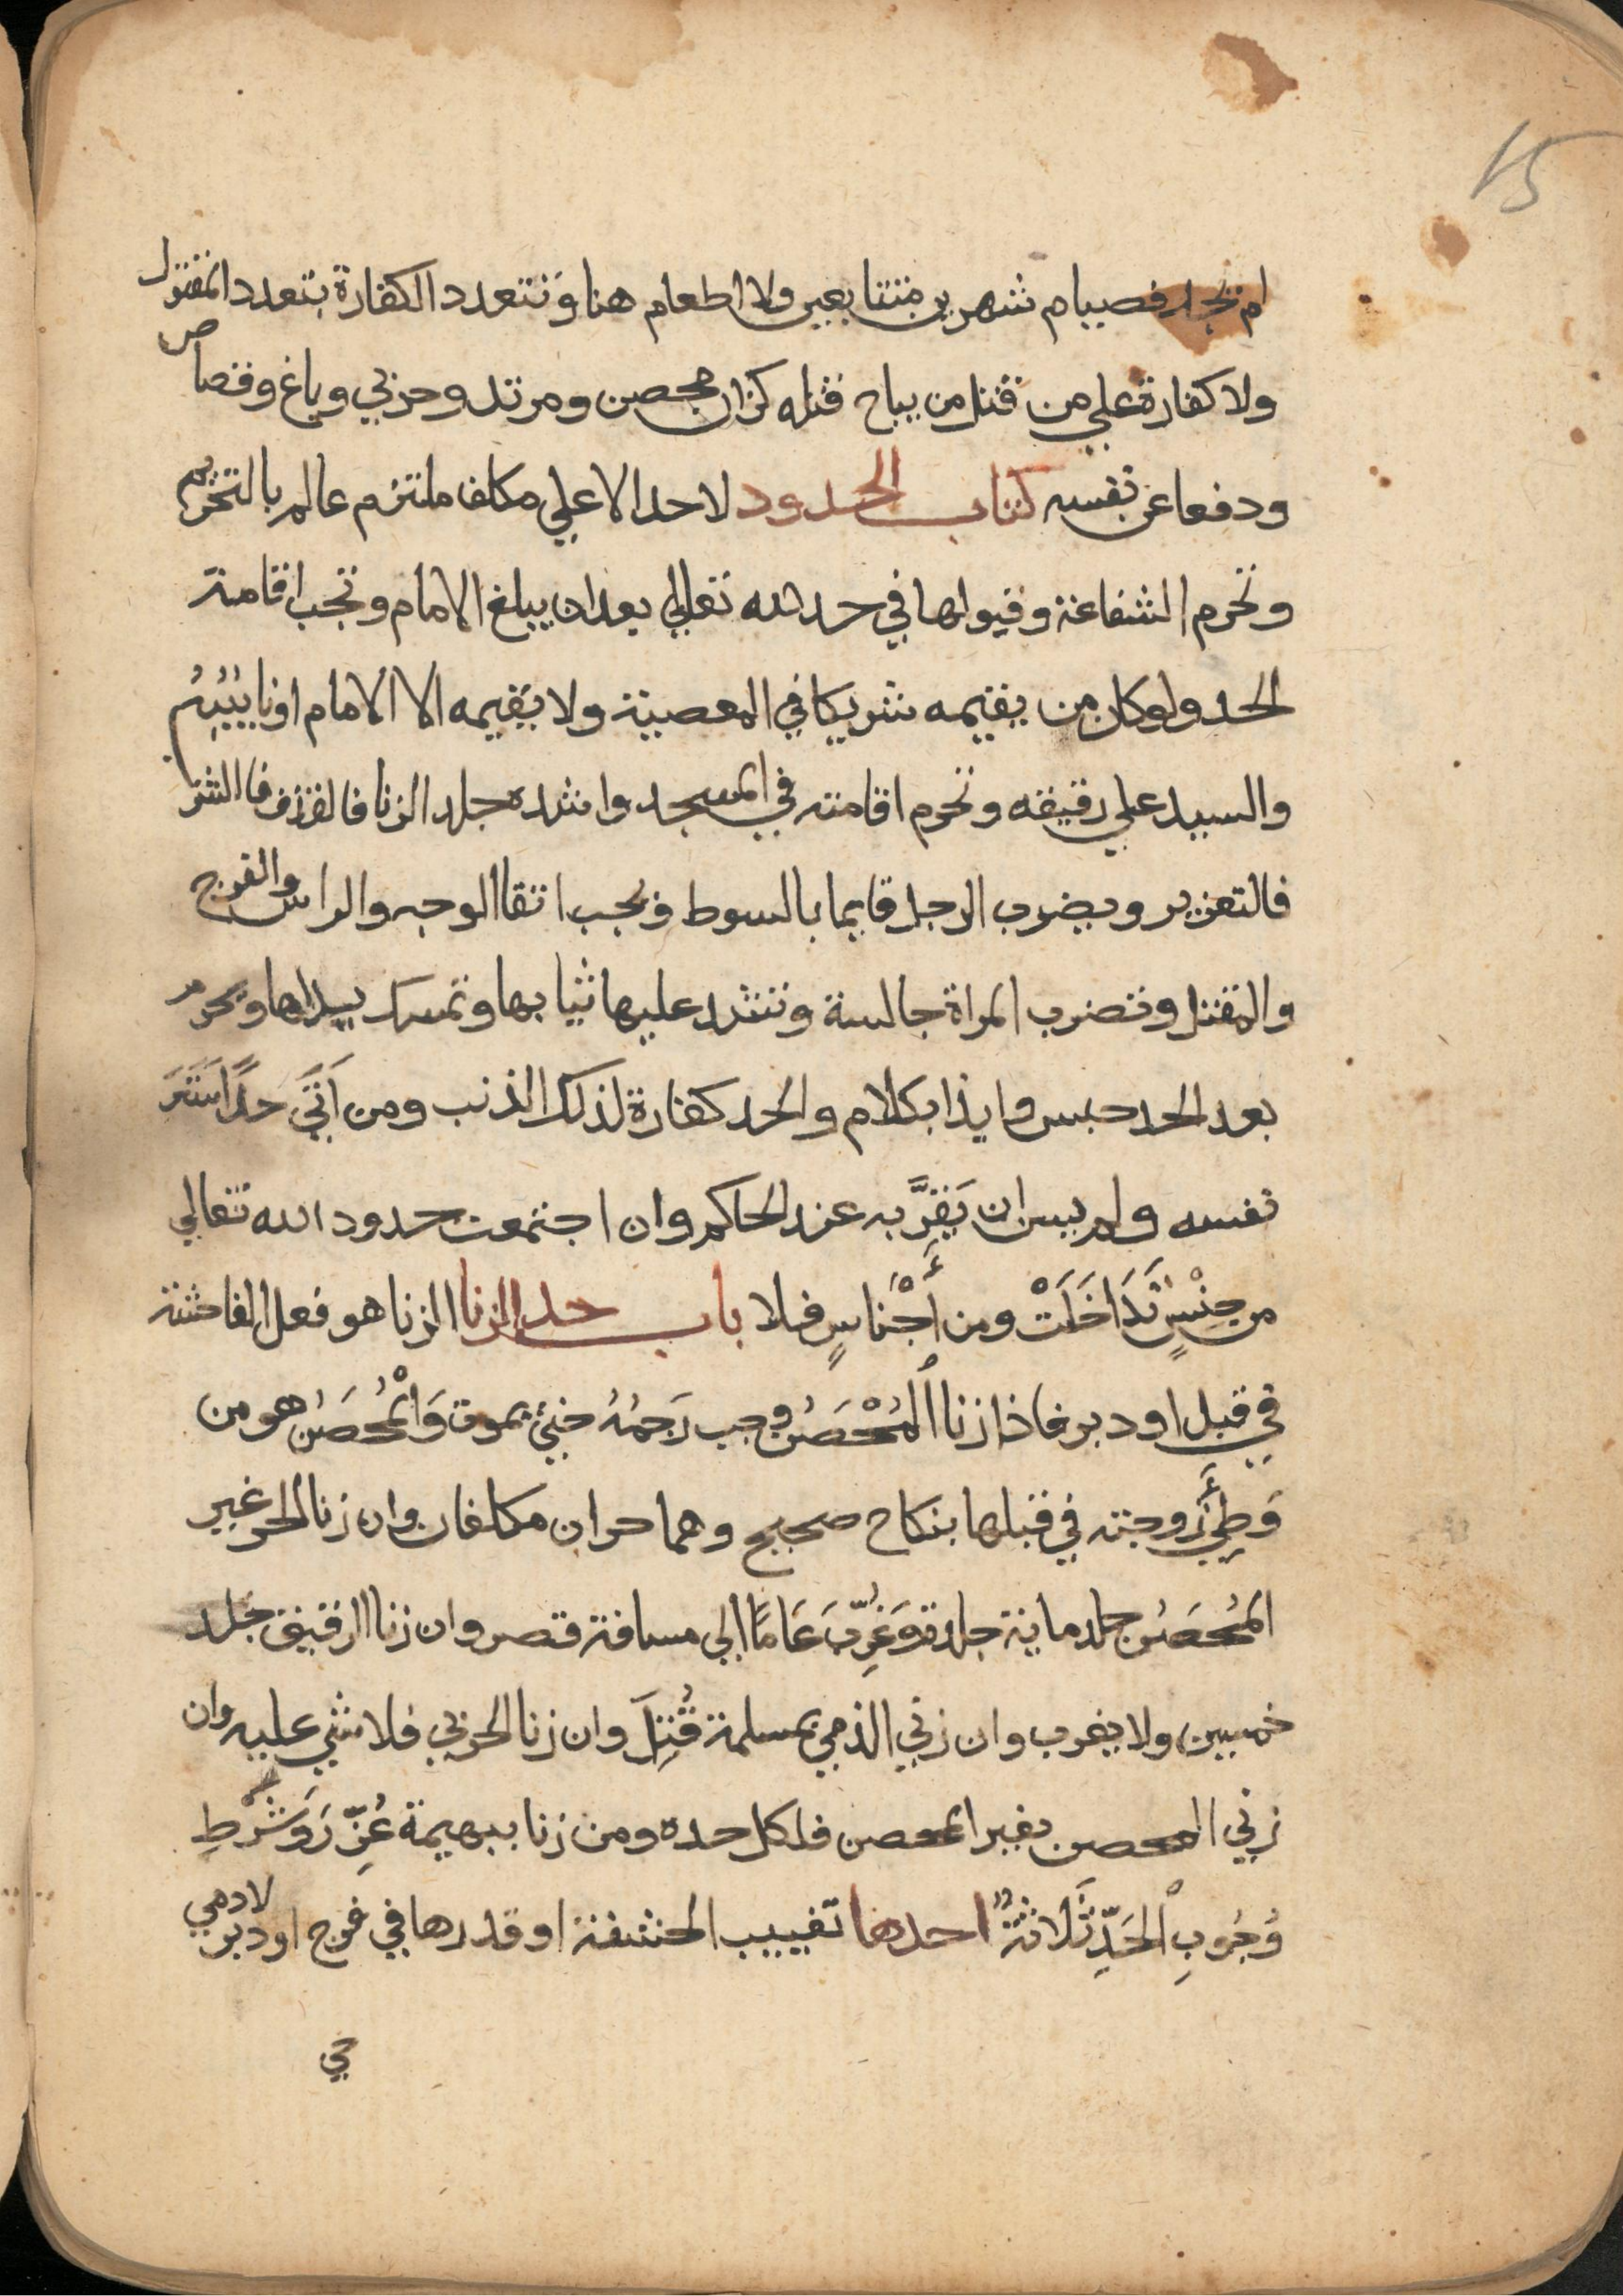 15
لم يجد فصيام شهرين متتابعين ولا اطعام هنا وتتعدد الكفارة بتعدد المقتول
ولا كفارة علي من قتل من يباح قتله كزان محصن ومرتد وحربي وباغ وقصاص
ودفعا عن نفسه كتاب الحدود لا حد الا علي مكلف ملتزم عالم بالتحريم
وتحرم الشفاعة وقبولها في حد الله تعالي بعد ان يبلغ الامام وتجب اقامة
الحد ولو كان من يقيمه شريكا في المعصية ولا يقيمه الا الامام او نايبهُ
والسيد علي رقيقه وتحرم اقامته في المسجد واشده جلد الزنا فالقذف فالشرب
فالتعزير ويضرب الرجل قايما بالسوط ويجب اتقا الوجه والراس والفرج
والمقتل وتضرب المراة جالسة وتشد عليها ثيابها وتمسك يداها ويحرم
بعد الحد حبس وايذا بكلام والحد كفارة لذلك الذنب ومن اَتَي حدًا سَتَرَ
نفسه ولم يسن ان يَقِرَّ به عند الحاكم وان اجتمعت حدود الله تعالي
من جِنْسٍ تَدَاخَلَتْ ومن أَجْنَاسٍ فلا باب حد الزنا الزنا هو فعل الفاحشة
في قبل او دبر فاذا زنا المُحْصَنُ وجب رَجمُهُ حتي يموت وَالْمُحصَنُ هو من
وَطِئَ زوجته في قبلها بنكاح صحيح وهما حران مكلفان وان زنا الحر غير
المُحصَنُ جلد ماية جلدة وَغُرِّبَ عَامًا الي مسافة قصر وان زنا الرقيق جلد
خمسين ولا يغرب وان زني الذمي بمسلمة قُتِلَ وان زنا الحربي فلا شي عليه وان
زني المحصن بغير المحصن فلكل حده ومن زنا ببهيمة عُزِّرَ وَشَرْطِ
وُجُوبِ الحَدِّ ثَلاثةٌ احدها تغييب الحشفة او قدرها في فرج او دبر لادمي
حي